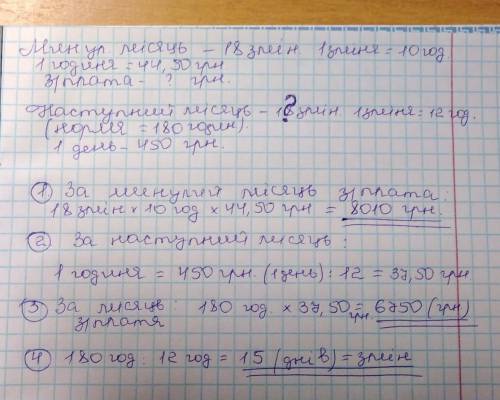 Минул. місяць – 18 змін. 1 зміна = 10 год.
1 година = 44,50 грн
З/плата - ? грн.
Наступний місяць – ? змін. 1 зміна = 12 год.
(норма = 180 годин).
1 день – 450 грн.
① За минулий місяць з/плата:
18 змін × 10 год × 44,50 грн = 8010 грн.
② За наступний місяць:
1 година = 450 грн. (1 день) : 12 = 37,50 грн
③ За місяць 180 год. × 37,50 грн. = 6750 (грн)
з/плата
④ 180 год : 12 год = 15 (днів) = змін